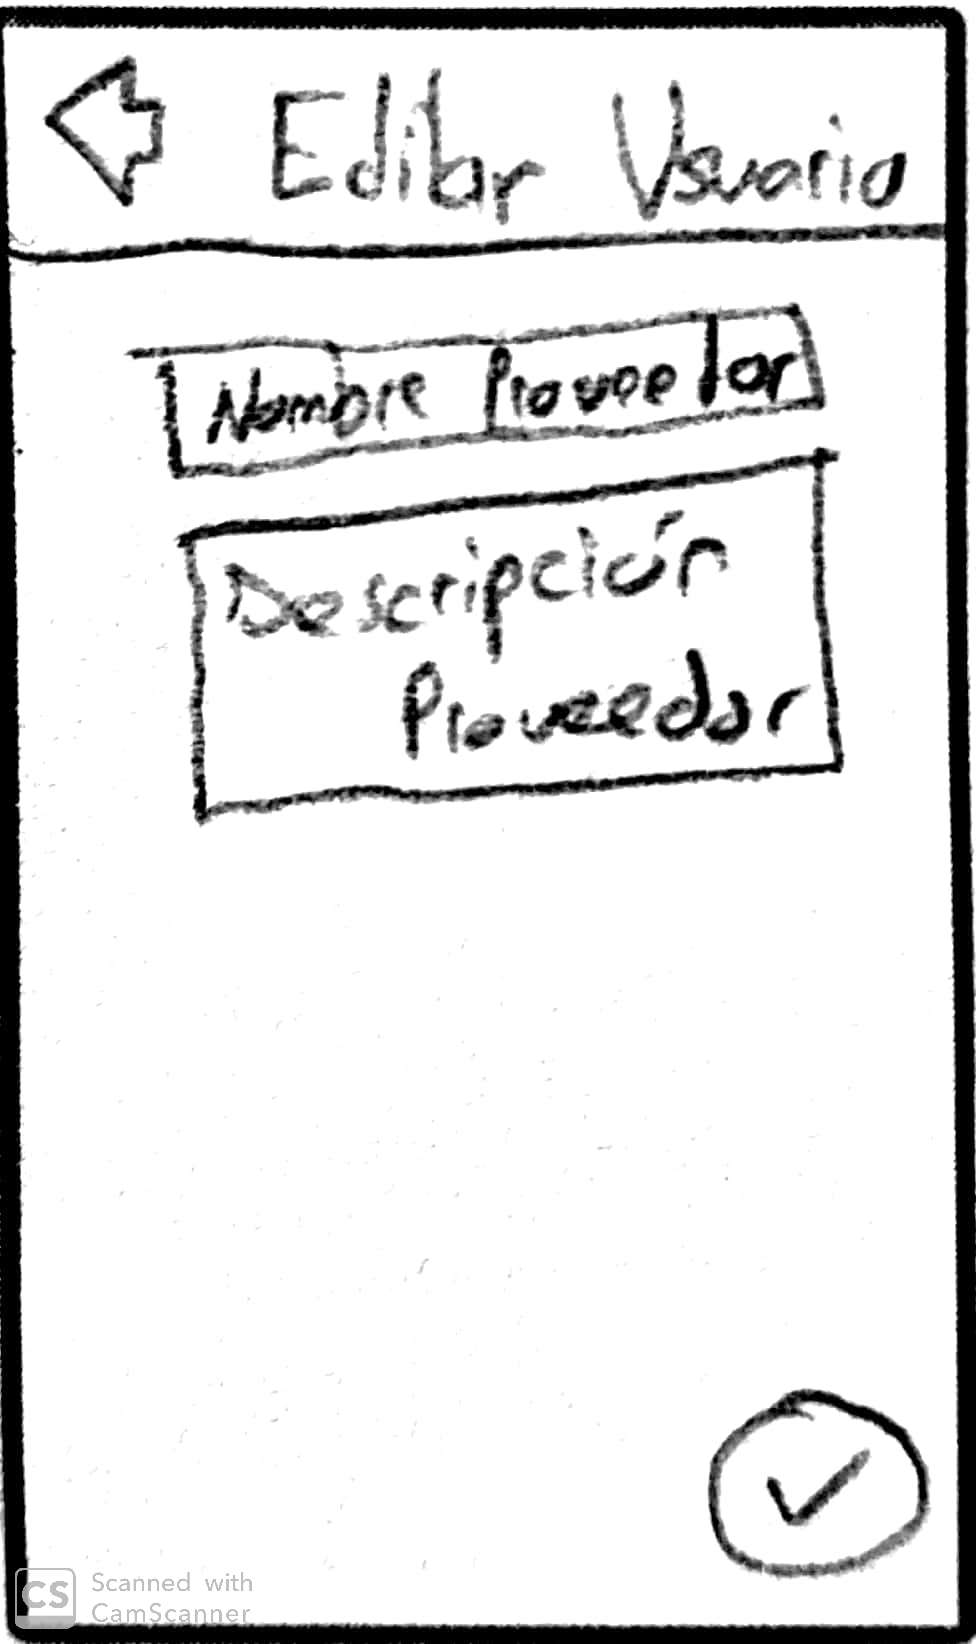 Editar Usuario
Nombre Proveedor
Descripción
Proveedor
CS Scanned with
CamScanner